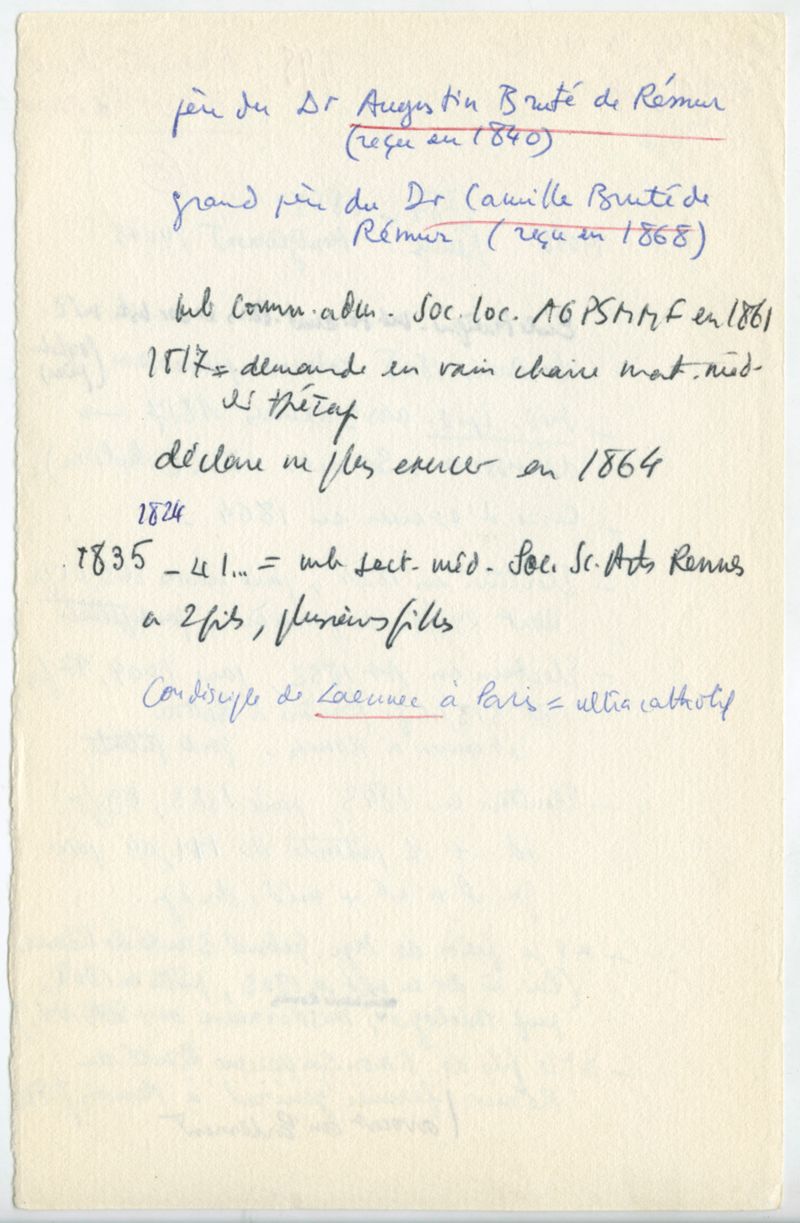 père du Dr Augustin Bruté de Rémur
(reçu en 1840)
grand père du Dr Camille Bruté de
Rémur (reçu en 1868)
mb comm. adm. Soc. loc. AGPSMMF en 1861
1817 = demande en vain chaire mat. méd.
et thérap
déclare ne plus exercer en 1864
1824
1835 - 41... = mb sect. méd. Soc. Sc. Arts Rennes
a 2 fils, plusieurs filles
Condisciple de Laennec à Paris = ultra catholiq